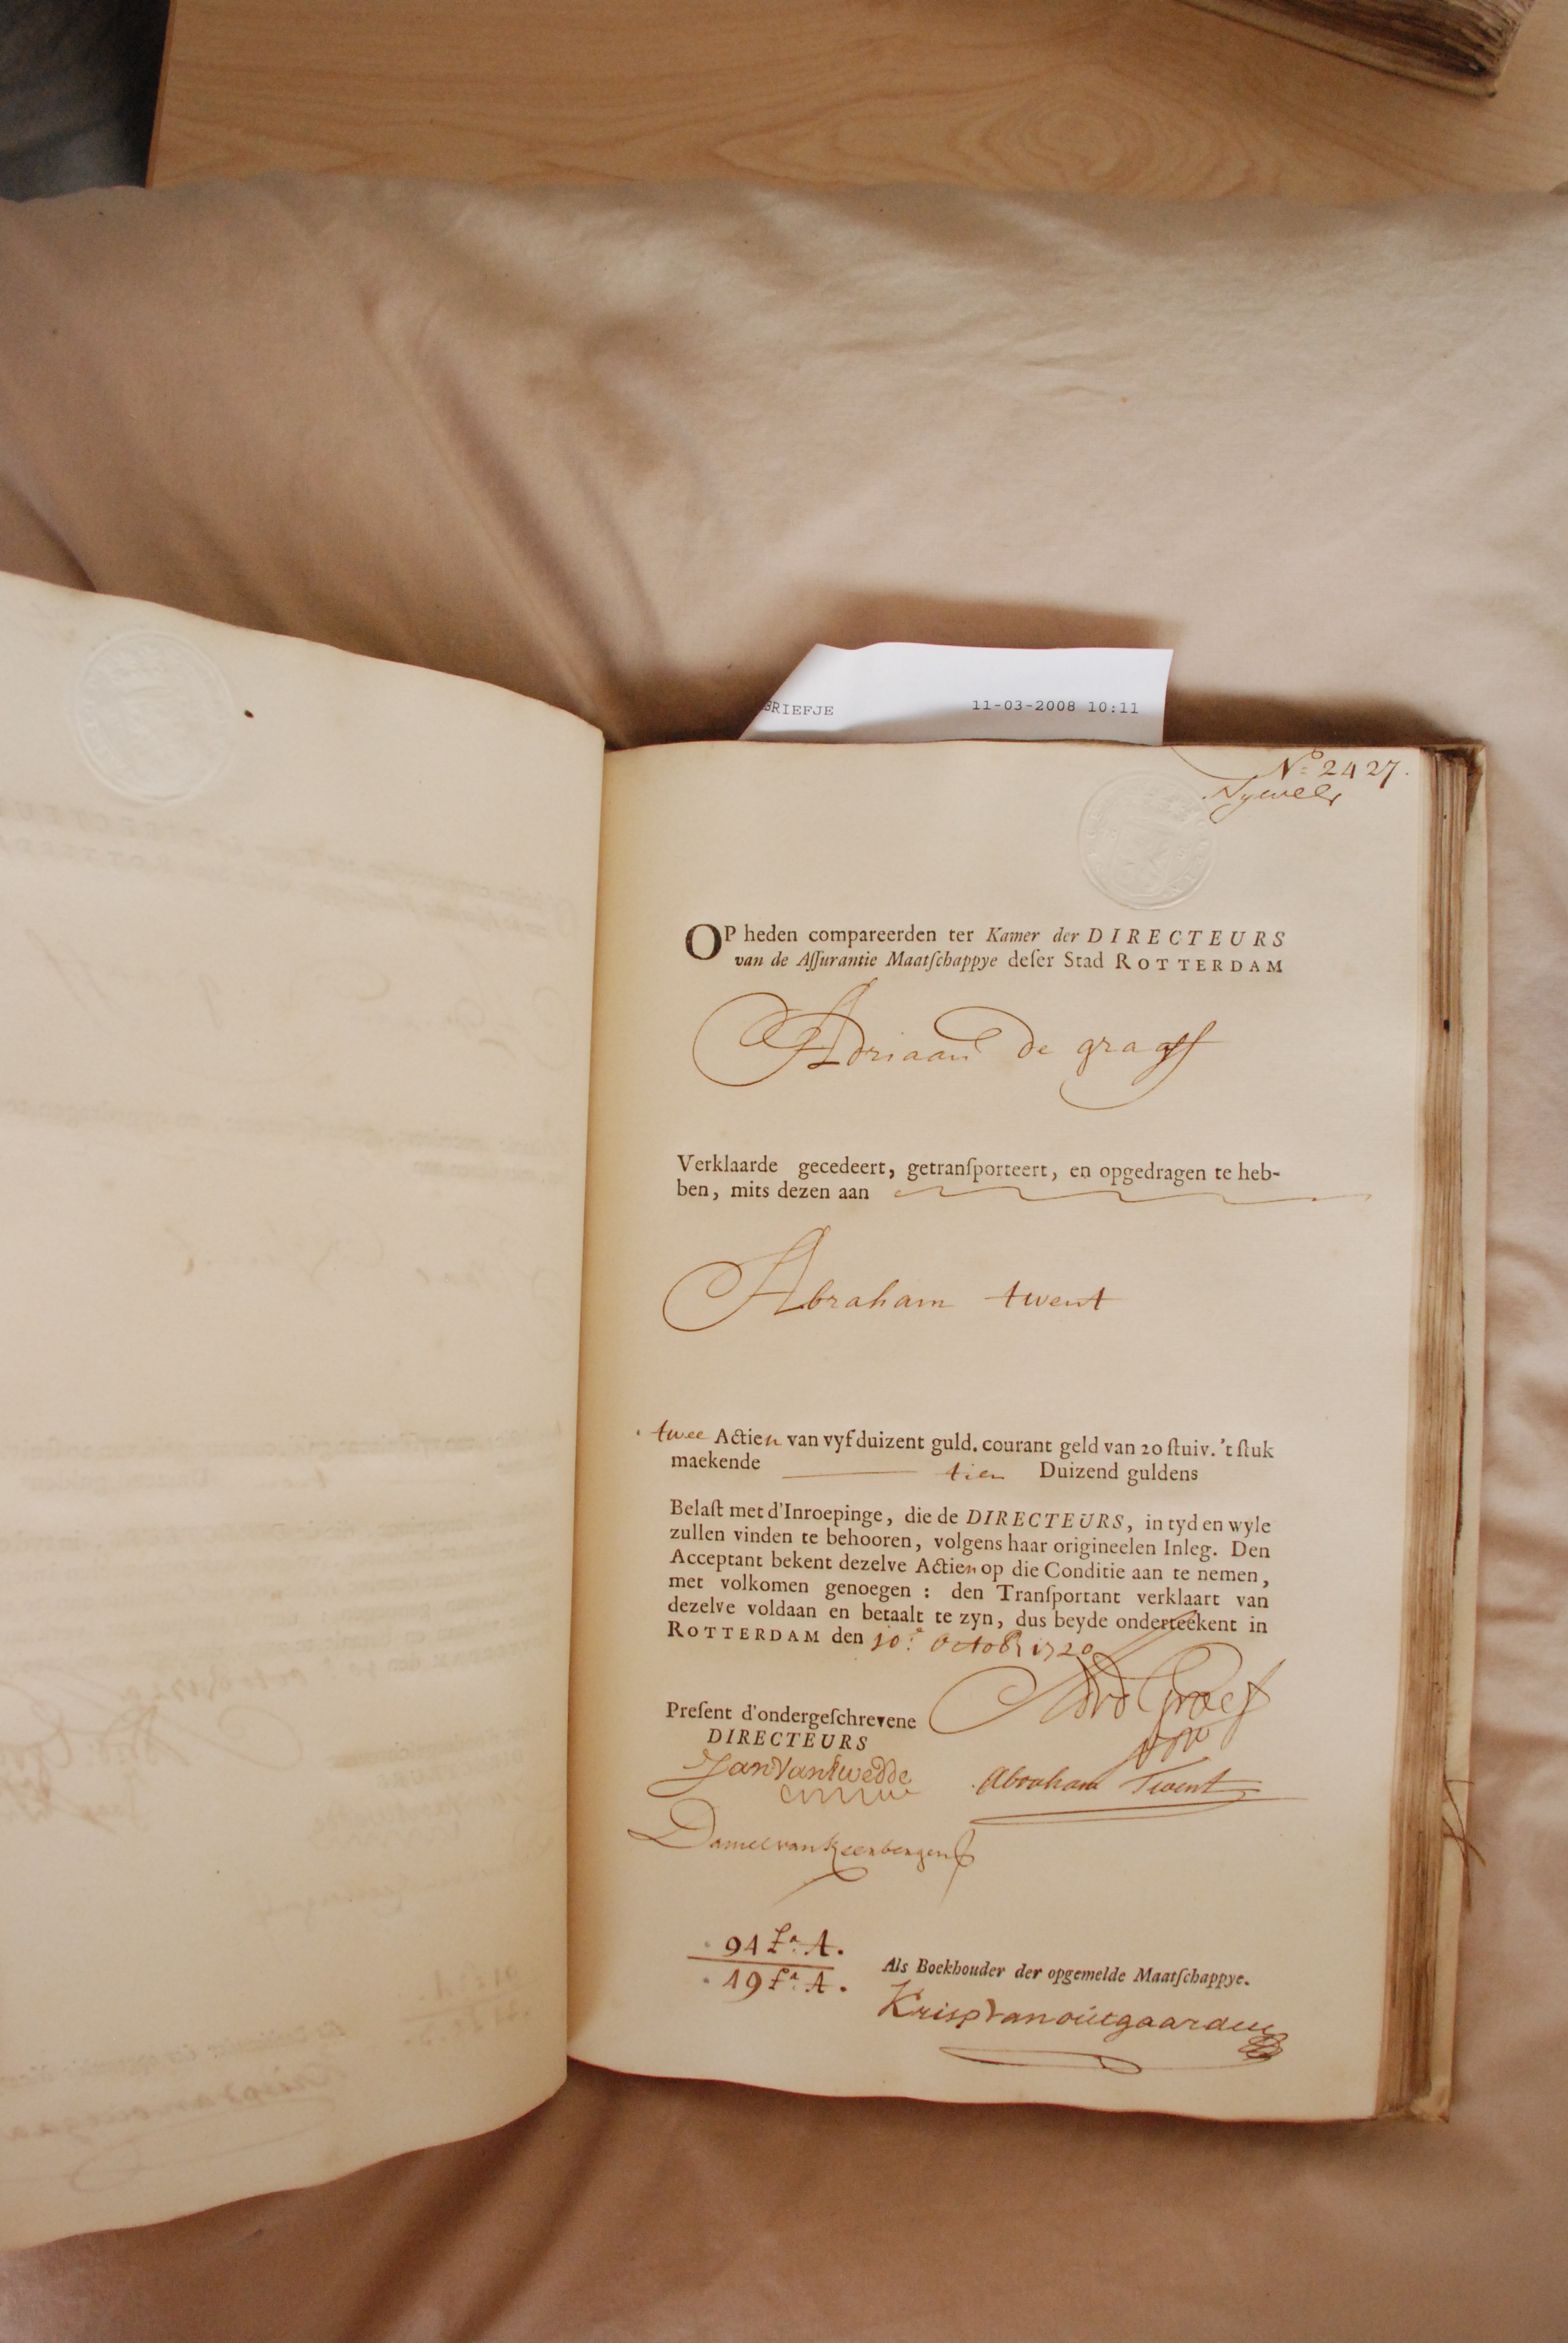 BRIEFJE 11-03-2008 10:11
No 2427.
OP heden compareerden ter Kamer der DIRECTEURS
van de Aſſurantie Maatſchappye deſer Stad ROTTERDAM
Adriaan De graaff
Verklaarde gecedeert, getranſporteert, en opgedragen te heb-
ben, mits dezen aan
Abraham twent
twee Actien van vyf duizent guld. courant geld van 20 ſtuiv. 't ſtuk
maekende tien Duizend guldens
Belaſt met d'Inroepinge, die de DIRECTEURS, in tyd en wyle
zullen vinden te behooren, volgens haar origineelen Inleg. Den
Acceptant bekent dezelve Actien op die Conditie aan te nemen,
met volkomen genoegen: den Tranſportant verklaart van
dezelve voldaan en betaalt te zyn, dus beyde onderteekent in
ROTTERDAM den 10e Octobr 1720
Preſent d'ondergeſchrevene
DIRECTEURS
Abraham Twent
91 La. A.
19 La. A.
Als Boekhouder der opgemelde Maatſchappye.